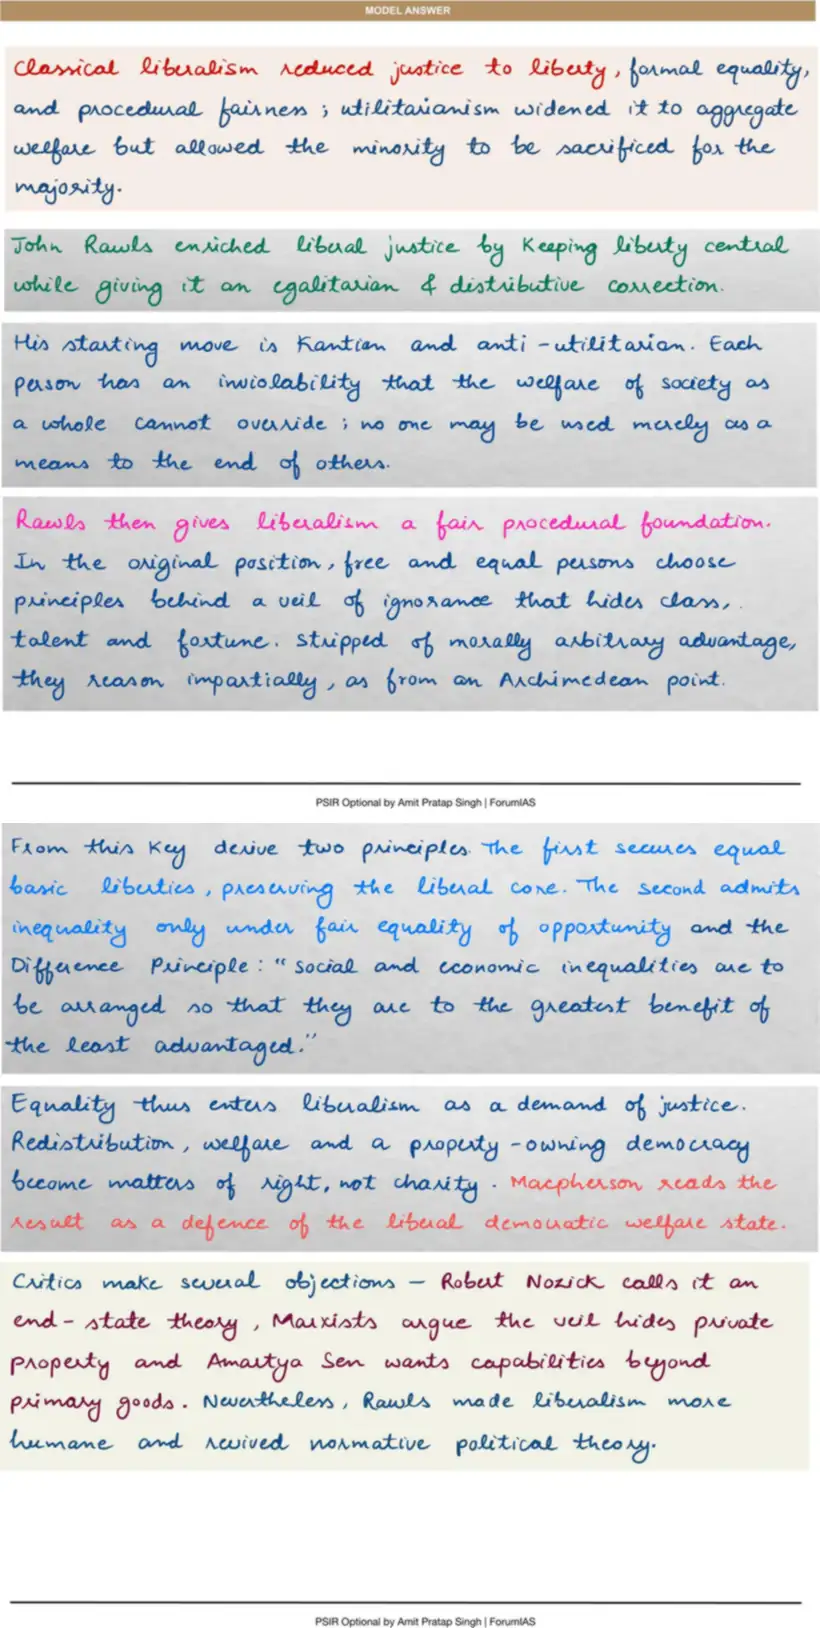 MODEL ANSWER
Classical liberalism reduced justice to liberty, formal equality,
and procedural fairness ; utilitarianism widened it to aggregate
welfare but allowed the minority to be sacrificed for the
majority.
John Rawls enriched liberal justice by Keeping liberty central
while giving it an egalitarian & distributive correction.
His starting move is Kantian and anti-utilitarian. Each
person has an inviolability that the welfare of society as
a whole cannot override ; no one may be used merely as a
means to the end of others.
Rawls then gives liberalism a fair procedural foundation.
In the original position, free and equal persons choose
principles behind a veil of ignorance that hides class,
talent and fortune. Stripped of morally arbitrary advantage,
they reason impartially, as from an Archimedean point.
PSIR Optional by Amit Pratap Singh | ForumIAS
From this Key derive two principles. The first secures equal
basic liberties, preserving the liberal core. The second admits
inequality only under fair equality of opportunity and the
Difference Principle : "Social and economic inequalities are to
be arranged so that they are to the greatest benefit of
the least advantaged."
Equality thus enters liberalism as a demand of justice.
Redistribution, welfare and a property-owning democracy
become matters of right, not charity. Macpherson reads the
result as a defence of the liberal democratic welfare state.
Critics make several objections – Robert Nozick calls it an
end-state theory, Marxists argue the veil hides private
property and Amartya Sen wants capabilities beyond
primary goods. Nevertheless, Rawls made liberalism more
humane and revived normative political theory.
PSIR Optional by Amit Pratap Singh | ForumIAS